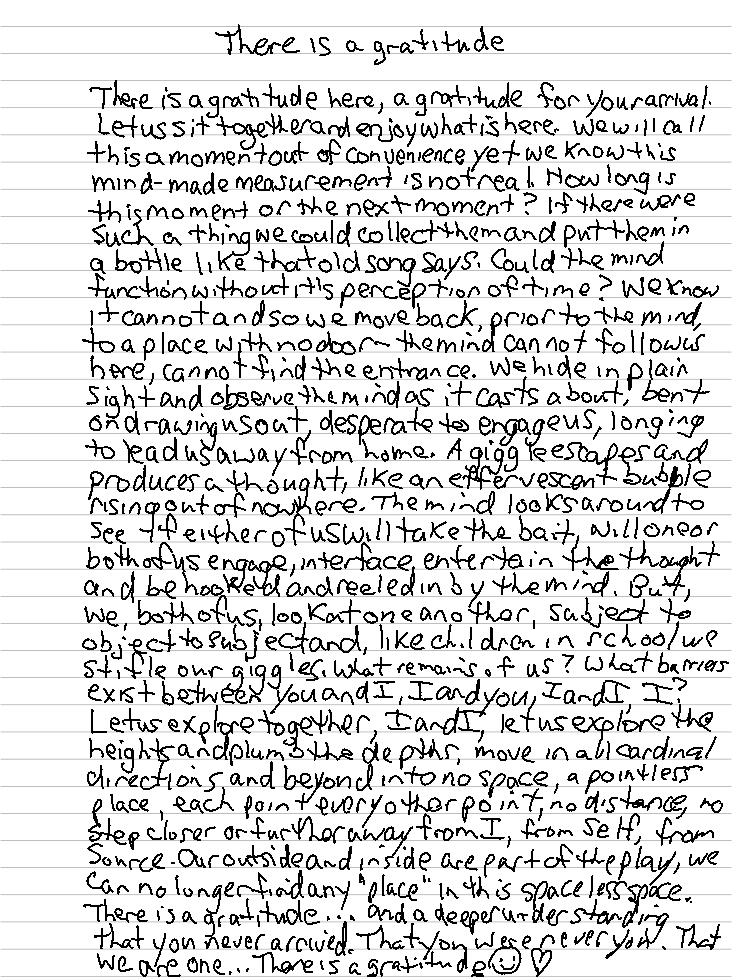 There is a gratitude
There is a gratitude here, a gratitude for your arrival.
Let us sit together and enjoy what is here. We will call
this a moment out of convenience yet we know this
mind-made measurement is not real. How long is
this moment or the next moment? If there were
such a thing we could collect them and put them in
a bottle like that old song says. Could the mind
function without it's perception of time? We know
it cannot and so we move back, prior to the mind,
to a place with no door - the mind cannot follow us
here, cannot find the entrance. We hide in plain
sight and observe the mind as it casts about, bent
on drawing us out, desperate to engage us, longing
to lead us away from home. A giggle escapes and
produces a thought, like an effervescent bubble
rising out of nowhere. The mind looks around to
see if either of us will take the bait, will one or
both of us engage, interface, entertain the thought
and be hooked and reeled in by the mind. But,
we, both of us, look at one another, subject to
object to subject and, like children in school we
stifle our giggles. What remains of us? What barriers
exist between you and I, I and you, I and I, I?
Let us explore together, I and I, let us explore the
heights and plumb the depths, move in all cardinal
directions and beyond into no space, a pointless
place, each point every other point, no distance, no
step closer or further away from I, from Self, from
Source. Our outside and inside are part of the play, we
can no longer find any "place" in this spaceless space.
There is a gratitude... and a deeper understanding
that you never arrived. That you were never you. That
we are one... There is a gratitude ☺ ♡